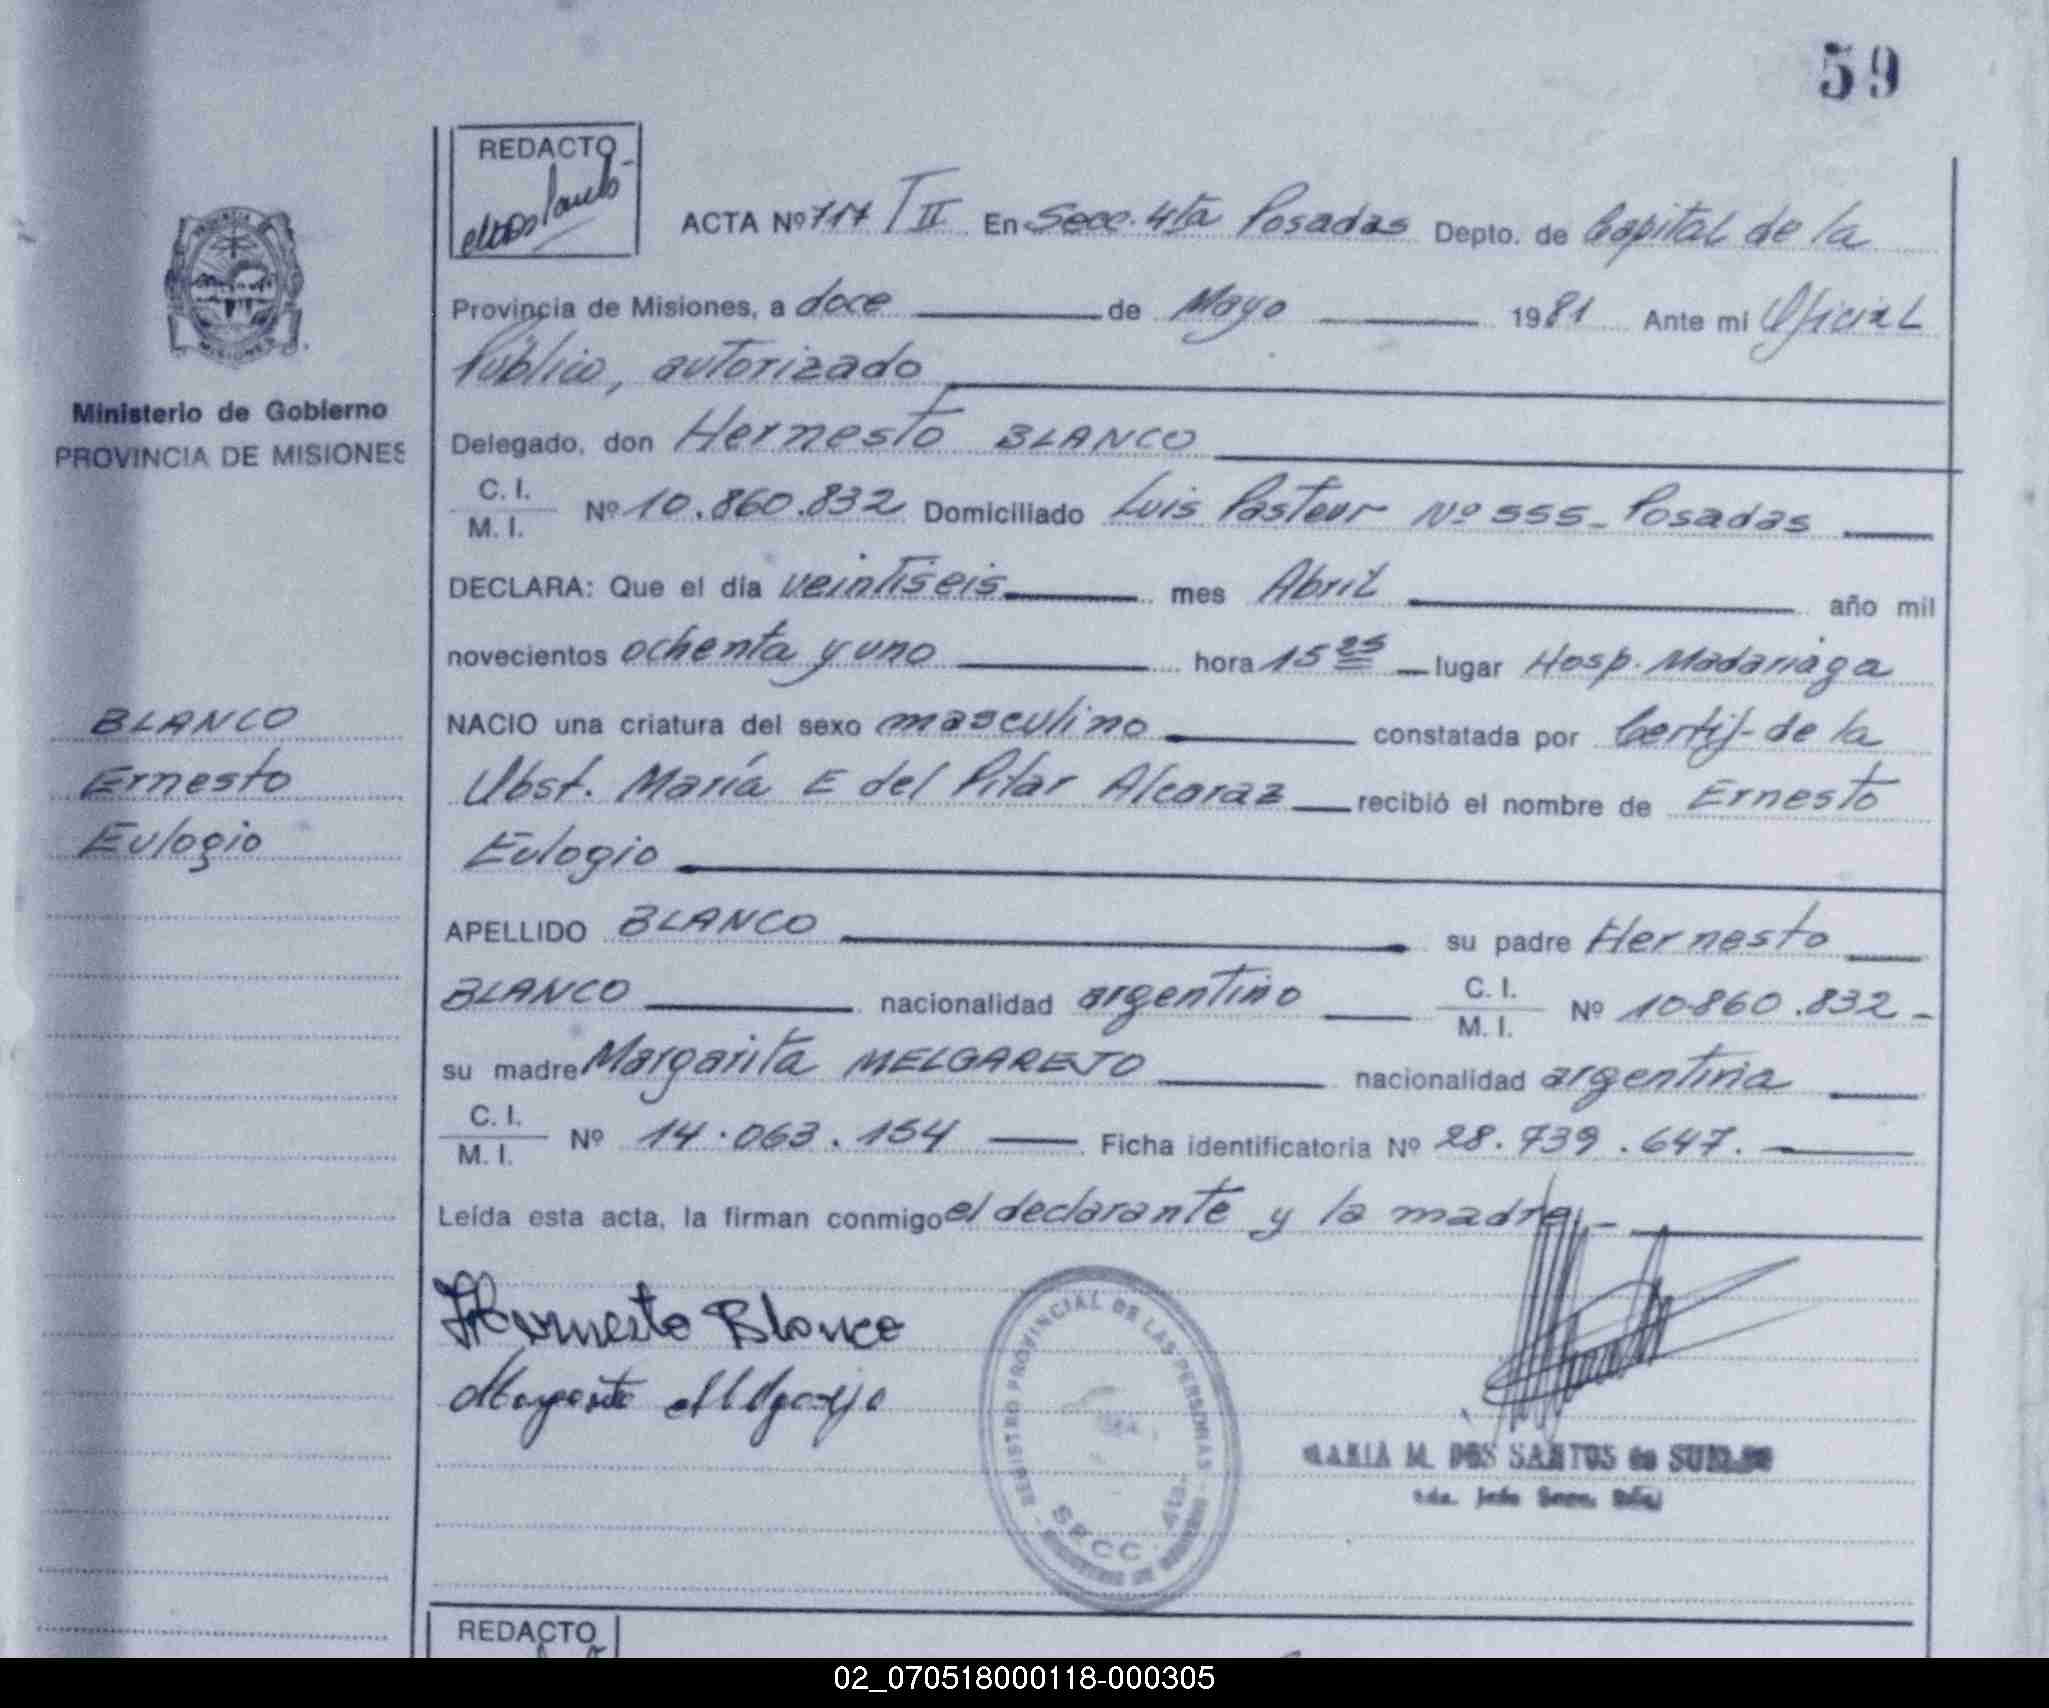 59
REDACTO
dos Santos
ACTA Nº 717 T II En Secc. 4ta Posadas Depto. de Capital de la
PROVINCIA
MISIONES
Provincia de Misiones, a doce de Mayo 1981 Ante mi Oficial
Público, autorizado
Ministerio de Gobierno
PROVINCIA DE MISIONES
Delegado, don Hernesto BLANCO
C. I.
M. I.
Nº 10.860.832 Domiciliado Luis Pasteur Nº 555_ Posadas
DECLARA: Que el día veintiseis mes Abril año mil
novecientos ochenta y uno hora 15 25 lugar Hosp. Madariaga
BLANCO
Ernesto
Eulogio
NACIO una criatura del sexo masculino constatada por Certif. de la
Obst. María E del Pilar Alcaraz recibió el nombre de Ernesto
Eulogio
APELLIDO BLANCO su padre Hernesto
BLANCO nacionalidad argentino C. I. M. I. Nº 10.860.832 -
su madre Margarita MELGAREJO nacionalidad argentina
C. I.
M. I.
Nº 14.063.154 Ficha identificatoria Nº 28.739.647.
Leída esta acta, la firman conmigo el declarante y la madre.-
Hernesto Blanco
Margarita Melgarejo
REGISTRO PROVINCIAL DE LAS PERSONAS
SECC. 4ta.
MARIA M. DOS SANTOS de
REDACTO
02_070518000118-000305